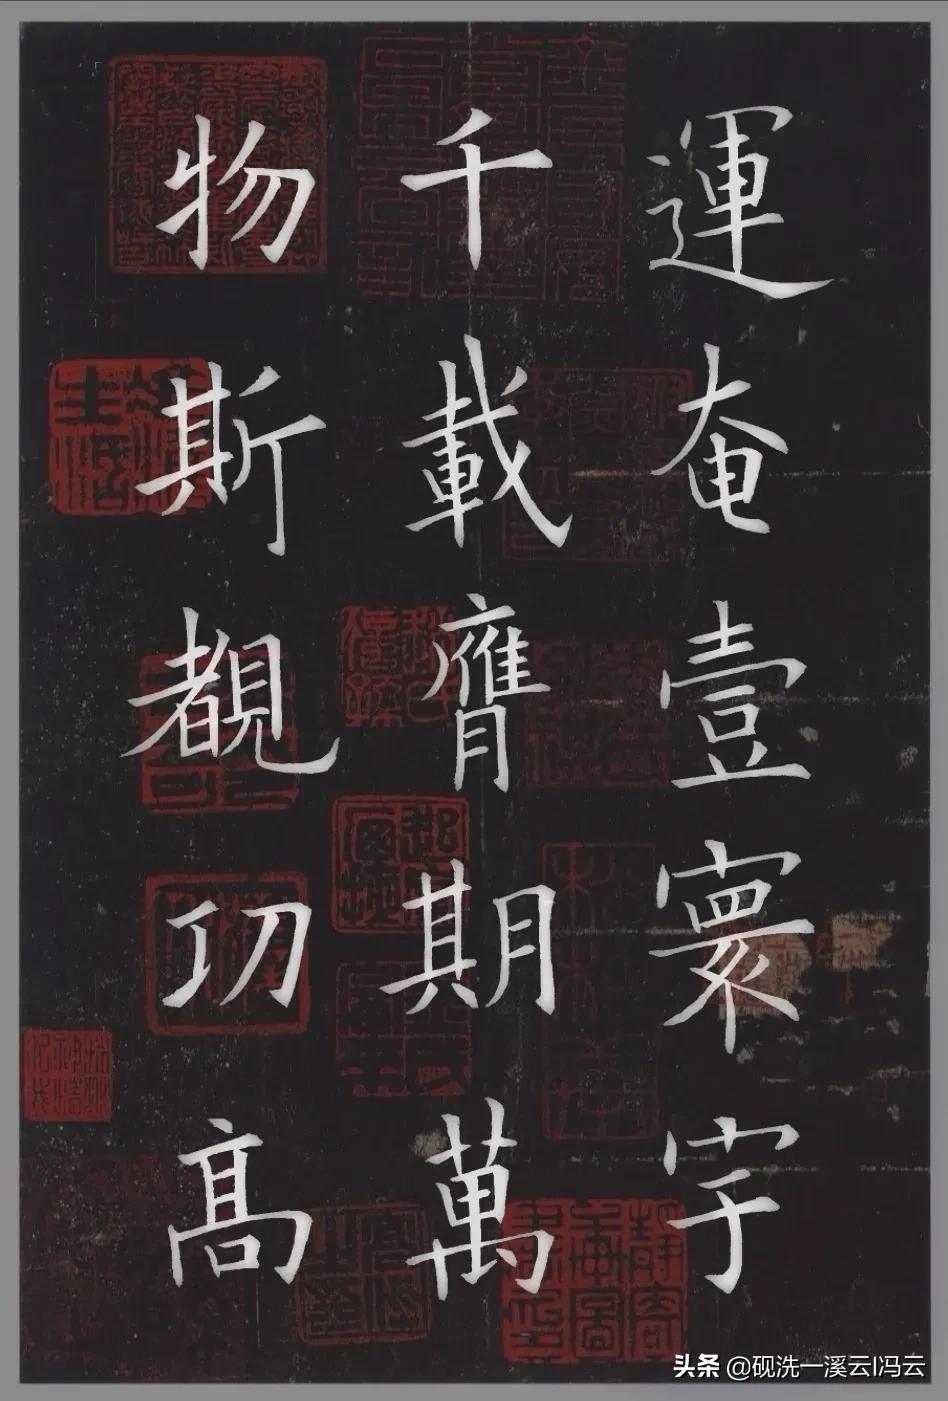 運奄壹寰宇
千載膺期萬
物斯覩功高
头条 @砚洗一溪云I冯云